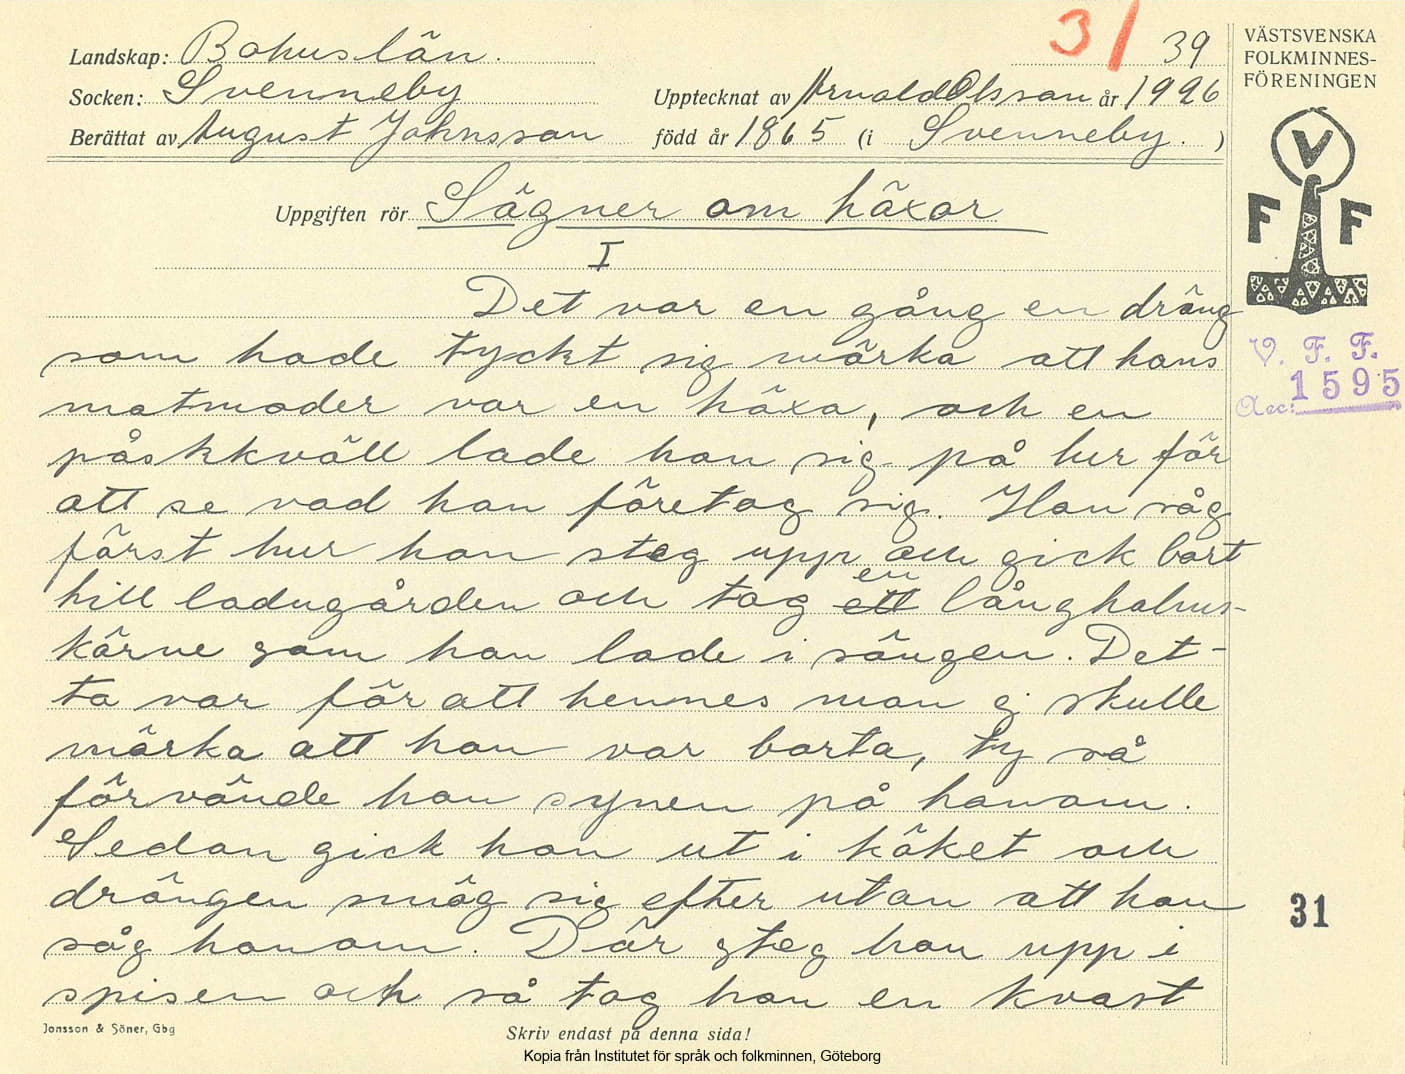 31
39
Landskap: Bohuslän.
Socken: Svenneby
Upptecknat av Arnold Olsson år 1926
Berättat av August Johnsson född år 1865 (i Svenneby. )
Uppgiften rör Sägner om häxor
I
Det var en gång en dräng
som hade tyckt sig märka att hans
matmoder var en häxa, och en
påskkväll lade han sig på lur för
att se vad hon företog sig. Han såg
först hur hon steg upp och gick bort
till ladugården och tog ett en långhalms-
kärve som hon lade i sängen. Det-
ta var för att hennes man ej skulle
märka att hon var borta, ty så
förvände hon synen på honom.
Sedan gick hon ut i köket och
drängen smög sig efter utan att hon
såg honom. Där steg hon upp i
spisen och så tog hon en kvast
Jonsson & Söner, Gbg
Skriv endast på denna sida!
Kopia från Institutet för språk och folkminnen, Göteborg
VÄSTSVENSKA
FOLKMINNES-
FÖRENINGEN
V
F F
V. F. F.
Acc: 1595
31